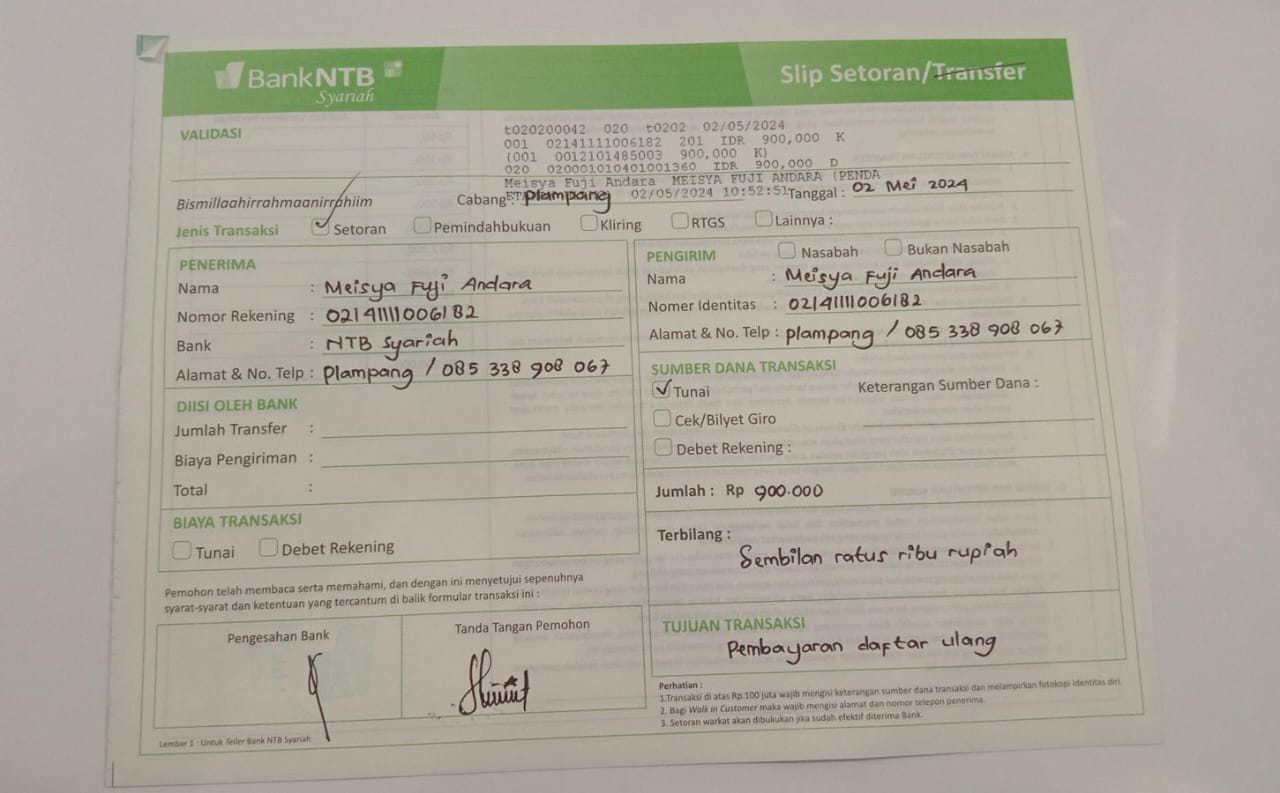 BankNTB
Syariah
Slip Setoran/Transfer
VALIDASI
t020200042 020 t0202 02/05/2024
001 02141111006182 201 IDR 900,000 K
(001 0012101485003 900,000 K)
020 020001010401001360 IDR 900,000 D
Meisya Fuji Andara MEISYA FUJI ANDARA (PENDA
02/05/2024 10:52:51
Bismillaahirrahmaanirrahiim
Cabang : Plampang
Tanggal : 02 Mei 2024
Jenis Transaksi Setoran Pemindahbukuan Kliring RTGS Lainnya :
PENERIMA
Nama : Meisya Fuji Andara
Nomor Rekening : 02141111006182
Bank : NTB Syariah
Alamat & No. Telp : Plampang / 085 338 908 067
DIISI OLEH BANK
Jumlah Transfer :
Biaya Pengiriman :
Total :
BIAYA TRANSAKSI
Tunai Debet Rekening
PENGIRIM Nasabah Bukan Nasabah
Nama : Meisya Fuji Andara
Nomer Identitas : 02141111006182
Alamat & No. Telp : Plampang / 085 338 908 067
SUMBER DANA TRANSAKSI
Tunai Keterangan Sumber Dana :
Cek/Bilyet Giro
Debet Rekening :
Jumlah : Rp 900.000
Terbilang :
Sembilan ratus ribu rupiah
TUJUAN TRANSAKSI
Pembayaran daftar ulang
Pemohon telah membaca serta memahami, dan dengan ini menyetujui sepenuhnya
syarat-syarat dan ketentuan yang tercantum di balik formular transaksi ini :
Pengesahan Bank
Tanda Tangan Pemohon
Perhatian :
1.Transaksi di atas Rp.100 juta wajib mengisi keterangan sumber dana transaksi dan melampirkan fotokopi identitas diri.
2. Bagi Walk in Customer maka wajib mengisi alamat dan nomor telepon penerima.
3. Setoran warkat akan dibukukan jika sudah efektif diterima Bank.
Lembar 1 : Untuk Teller Bank NTB Syariah